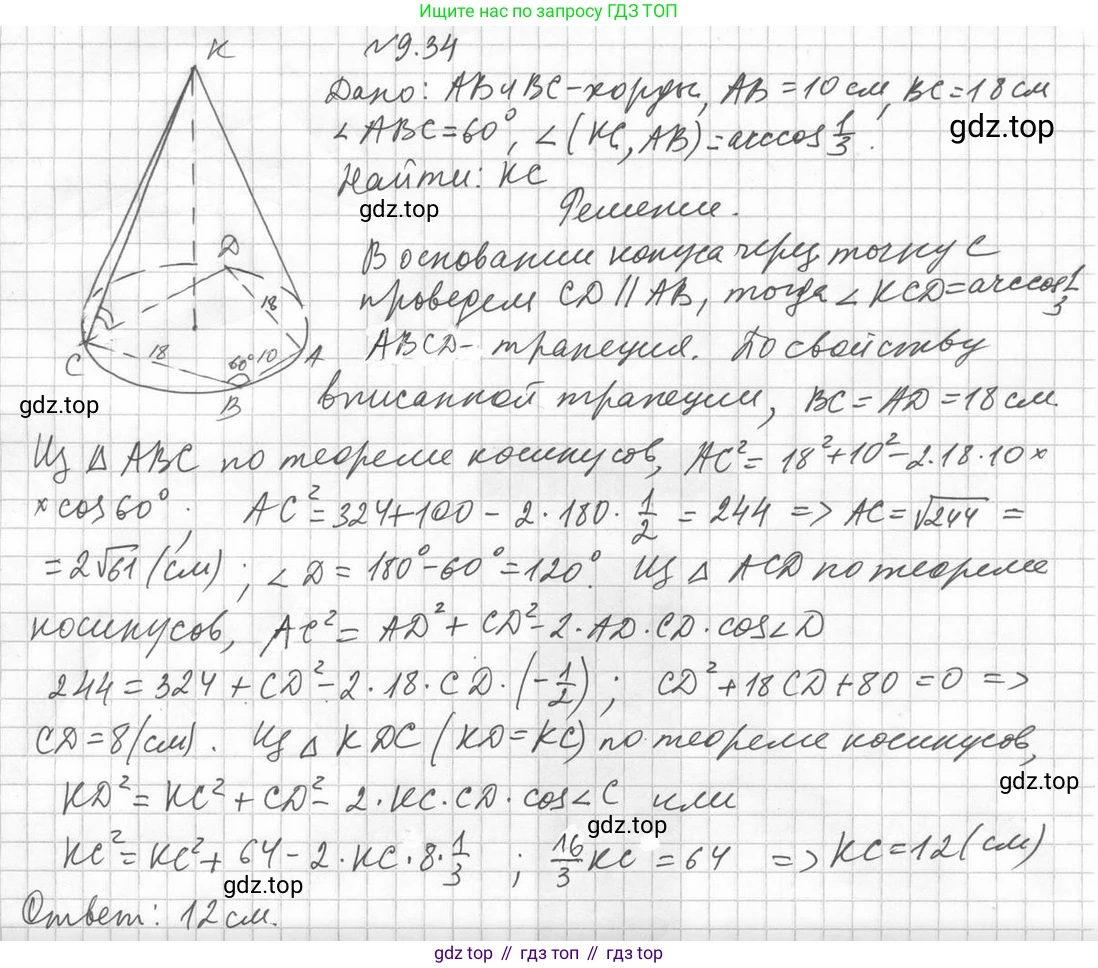 Ищите нас по запросу ГДЗ ТОП
K
№9.34
Дано: AB и BC - хорды, AB = 10 см, BC = 18 см
∠ABC = 60°, ∠(KC, AB) = arccos 1/3.
gdz.top
Найти: KC
gdz.top
Решение.
В основании конуса через точку C
проведем CD || AB, тогда ∠KCD = arccos 1/3
ABCD - трапеция. По свойству
вписанной трапеции, BC = AD = 18 см
D
18
C
18
60°
10
A
B
gdz.top
Из △ ABC по теореме косинусов, AC² = 18² + 10² - 2·18·10 ×
× cos 60°; AC² = 324 + 100 - 2·180·1/2 = 244 => AC = √244 =
= 2√61 (см); ∠D = 180° - 60° = 120°. Из △ ACD по теореме
косинусов, AC² = AD² + CD² - 2·AD·CD·cos∠D
244 = 324 + CD² - 2·18·CD·(-1/2); CD² + 18CD + 80 = 0 =>
CD = 8 (см). Из △ KDC (KD = KC) по теореме косинусов,
gdz.top
KD² = KC² + CD² - 2·KC·CD·cos∠C или
gdz.top
KC² = KC² + 64 - 2·KC·8·1/3; 16/3 KC = 64 => KC = 12 (см)
gdz.top
Ответ: 12 см.
gdz.top // гдз топ // gdz.top